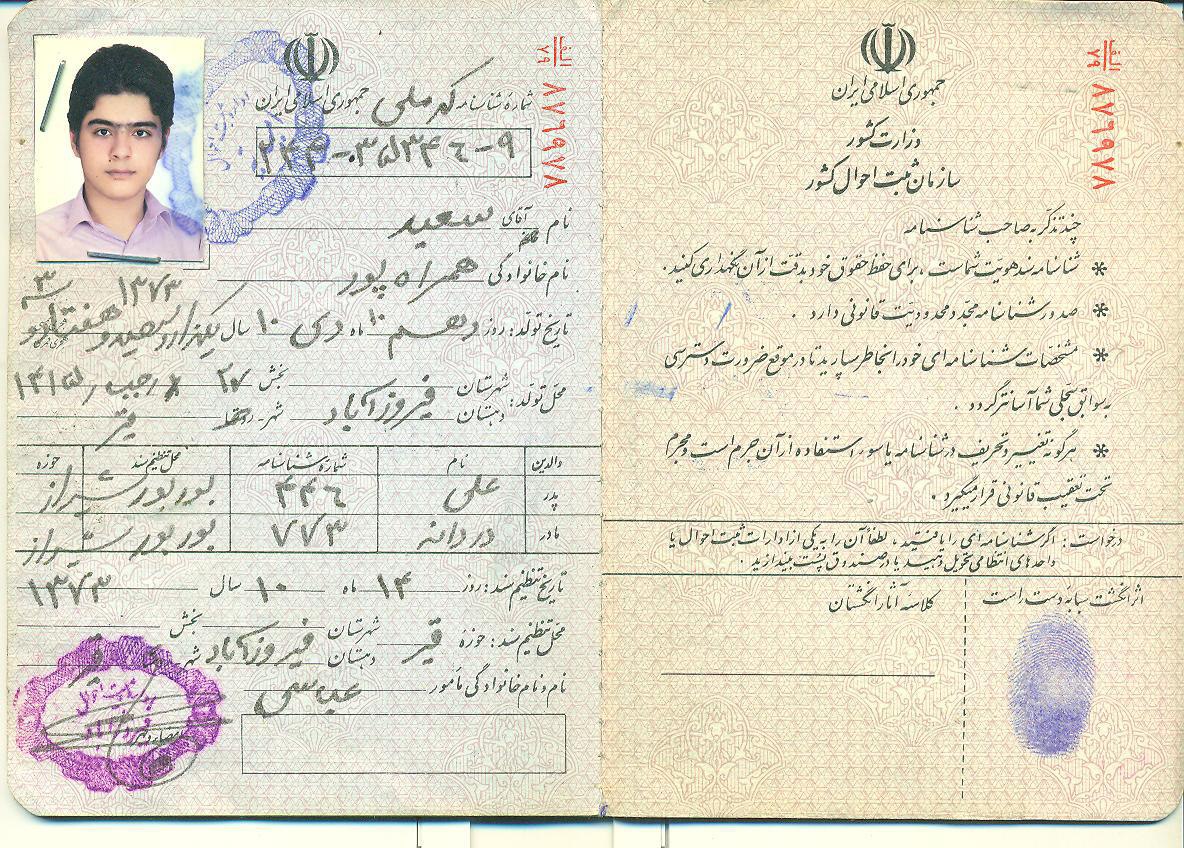 جمهوری اسلامی ایران
وزارت کشور
سازمان ثبت احوال کشور
الف
۷۹
۸۷۹۹۷۸
چند تذکر به صاحب شناسنامه
* شناسنامه سند هویت شماست ، برای حفظ حقوق خود بدقت از آن نگهداری کنید .
* صدور شناسنامه مجدد محدودیت قانونی دارد .
* مشخصات شناسنامه ای خود را بخاطر بسپارید تا در موقع ضرورت دسترسی
به سوابق سجلی شما آسانتر گردد .
* هرگونه تغییر و تحریف در شناسنامه یا سوء استفاده از آن جرم است و مجرم
تحت تعقیب قانونی قرار میگیرد .
درخواست : اگر شناسنامه ای را یافتید ، لطفاً آن را به یکی از ادارات ثبت احوال یا
واحدهای انتظامی تحویل دهید یا در صندوق پست بیندازید .
اثر انگشت سبابه دست راست
کلاسه آثار انگشتان
الف
۷۹
۸۷۹۹۷۸
جمهوری اسلامی ایران
شماره شناسنامه کد ملی
نام آقای سعید
نام خانوادگی همراه پور
۱۳۷۳
تاریخ تولد : روز دهم ۱۰ ماه دی ۱۰ سال یکهزار و سیصد و هفتاد و سه
محل تولد : شهرستان فیروزآباد بخش
۲۷ رجب ۱۴۱۵
دهستان شهر - قیر
والدین نام شماره شناسنامه محل تنظیم سند حوزه
پدر علی ۴۴۶ شیراز
مادر دردانه ۷۷۳ شیراز
تاریخ تنظیم سند : روز ۱۴ ماه ۱۰ سال ۱۳۷۳
محل تنظیم سند : حوزه قیر شهرستان فیروزآباد بخش
دهستان شهر قیر
نام و نام خانوادگی مأمور عباسی